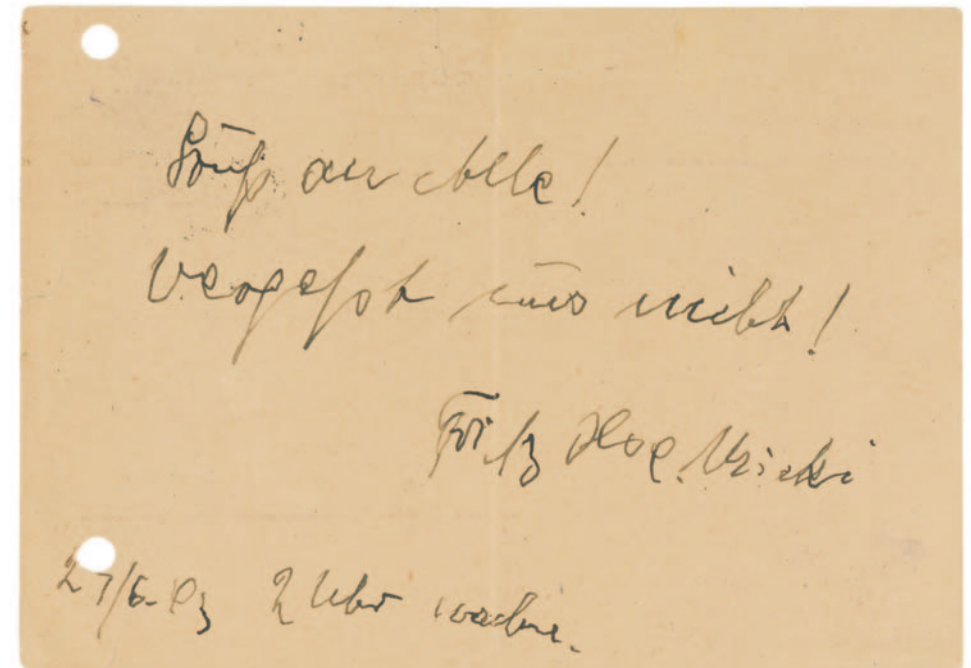 Gruß an Alle!
Vergeßt uns nicht!
Fritz
27/6. 2 Uhr